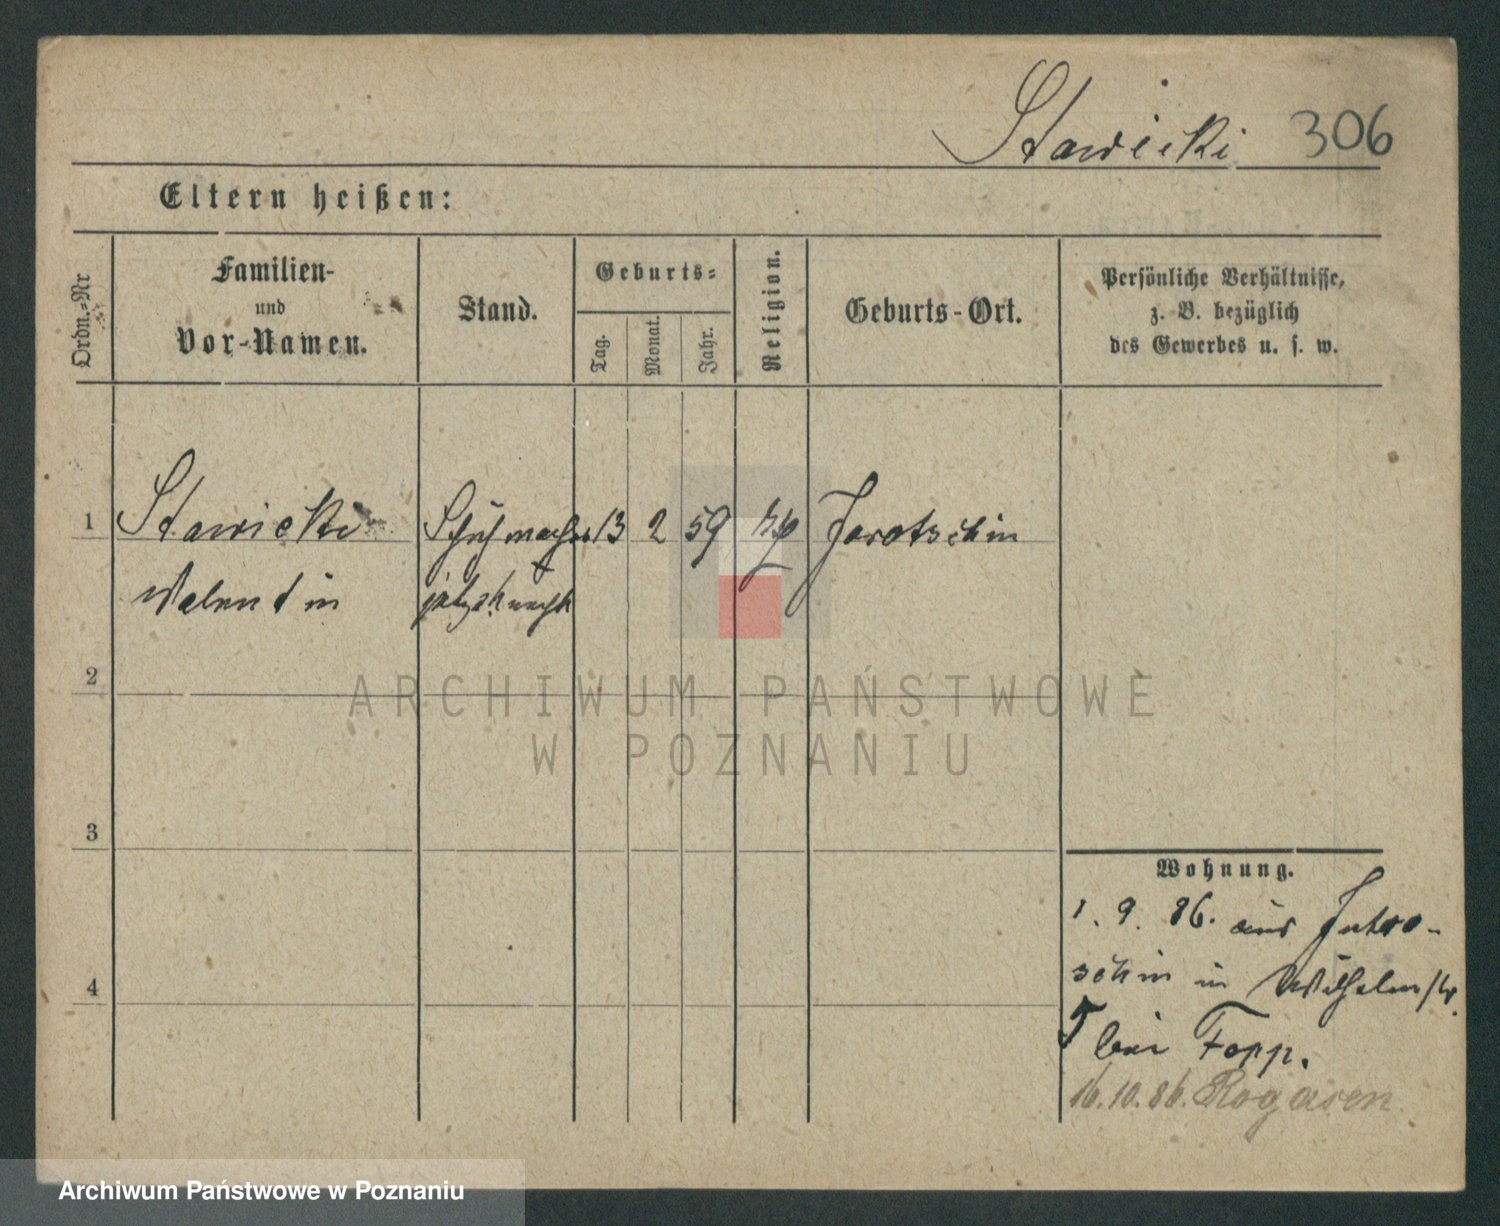 Stawicki 306
Eltern heißen:
Ordn.-Nr
Familien-
und
Vor-Namen.
Stand.
Geburts-
Tag.
Monat.
Jahr.
Religion.
Geburts-Ort.
Persönliche Verhältnisse,
z. B. bezüglich
des Gewerbes u. s. w.
1 Stawicki Schuhmacher 13 2 59 Jarotschin
Valentin
2
3
4
Wohnung.
1. 9. 86. aus
schin in Wilhelmstr.
5 bei Topp.
16.10.86. Rogasen
ARCHIWUM PAŃSTWOWE
W POZNANIU
Archiwum Państwowe w Poznaniu